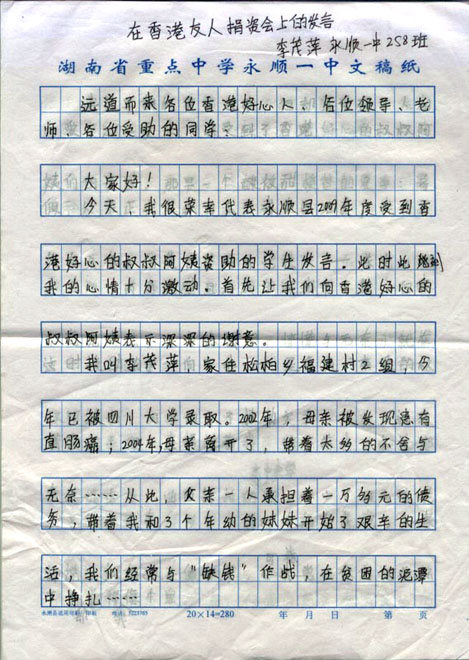 在香港友人捐资会上的发言
李茂萍 永顺一中258班
湖南省重点中学永顺一中文稿纸
远道而来各位香港好心人、各位领导、老
师、各位受助的同学：
大家好！
今天，我很荣幸代表永顺县2009年度受到香
港好心的叔叔阿姨资助的学生发言。此时此刻
我的心情十分激动。首先让我们向香港好心的
叔叔阿姨表示深深的谢意。
我叫李茂萍，家住松柏乡福建村2组，今
年已被四川大学录取。2002年，母亲被发现患有
直肠癌；2004年，母亲离开了，带着太多的不舍与
无奈……从此，父亲一人承担着一万多元的债
务，带着我和3个年幼的妹妹开始了艰辛的生
活，我们经常与“缺钱”作战，在贫困的泥潭
中挣扎……
20×14=280 年 月 日 第 页